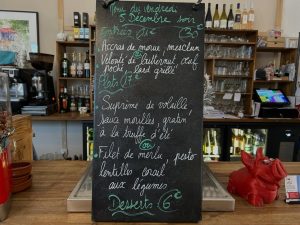 Menu du Vendredi
5 Décembre soir
Entrées 11€
Accras de morue, mesclun
ou
Velouté de butternut, œuf
poché, lard grillé
Plats 17€
Suprême de volaille,
sauce morilles, gratin
à la truffe d'été
ou
Filet de merlu, pesto
lentilles corail
aux légumes
Desserts 6€